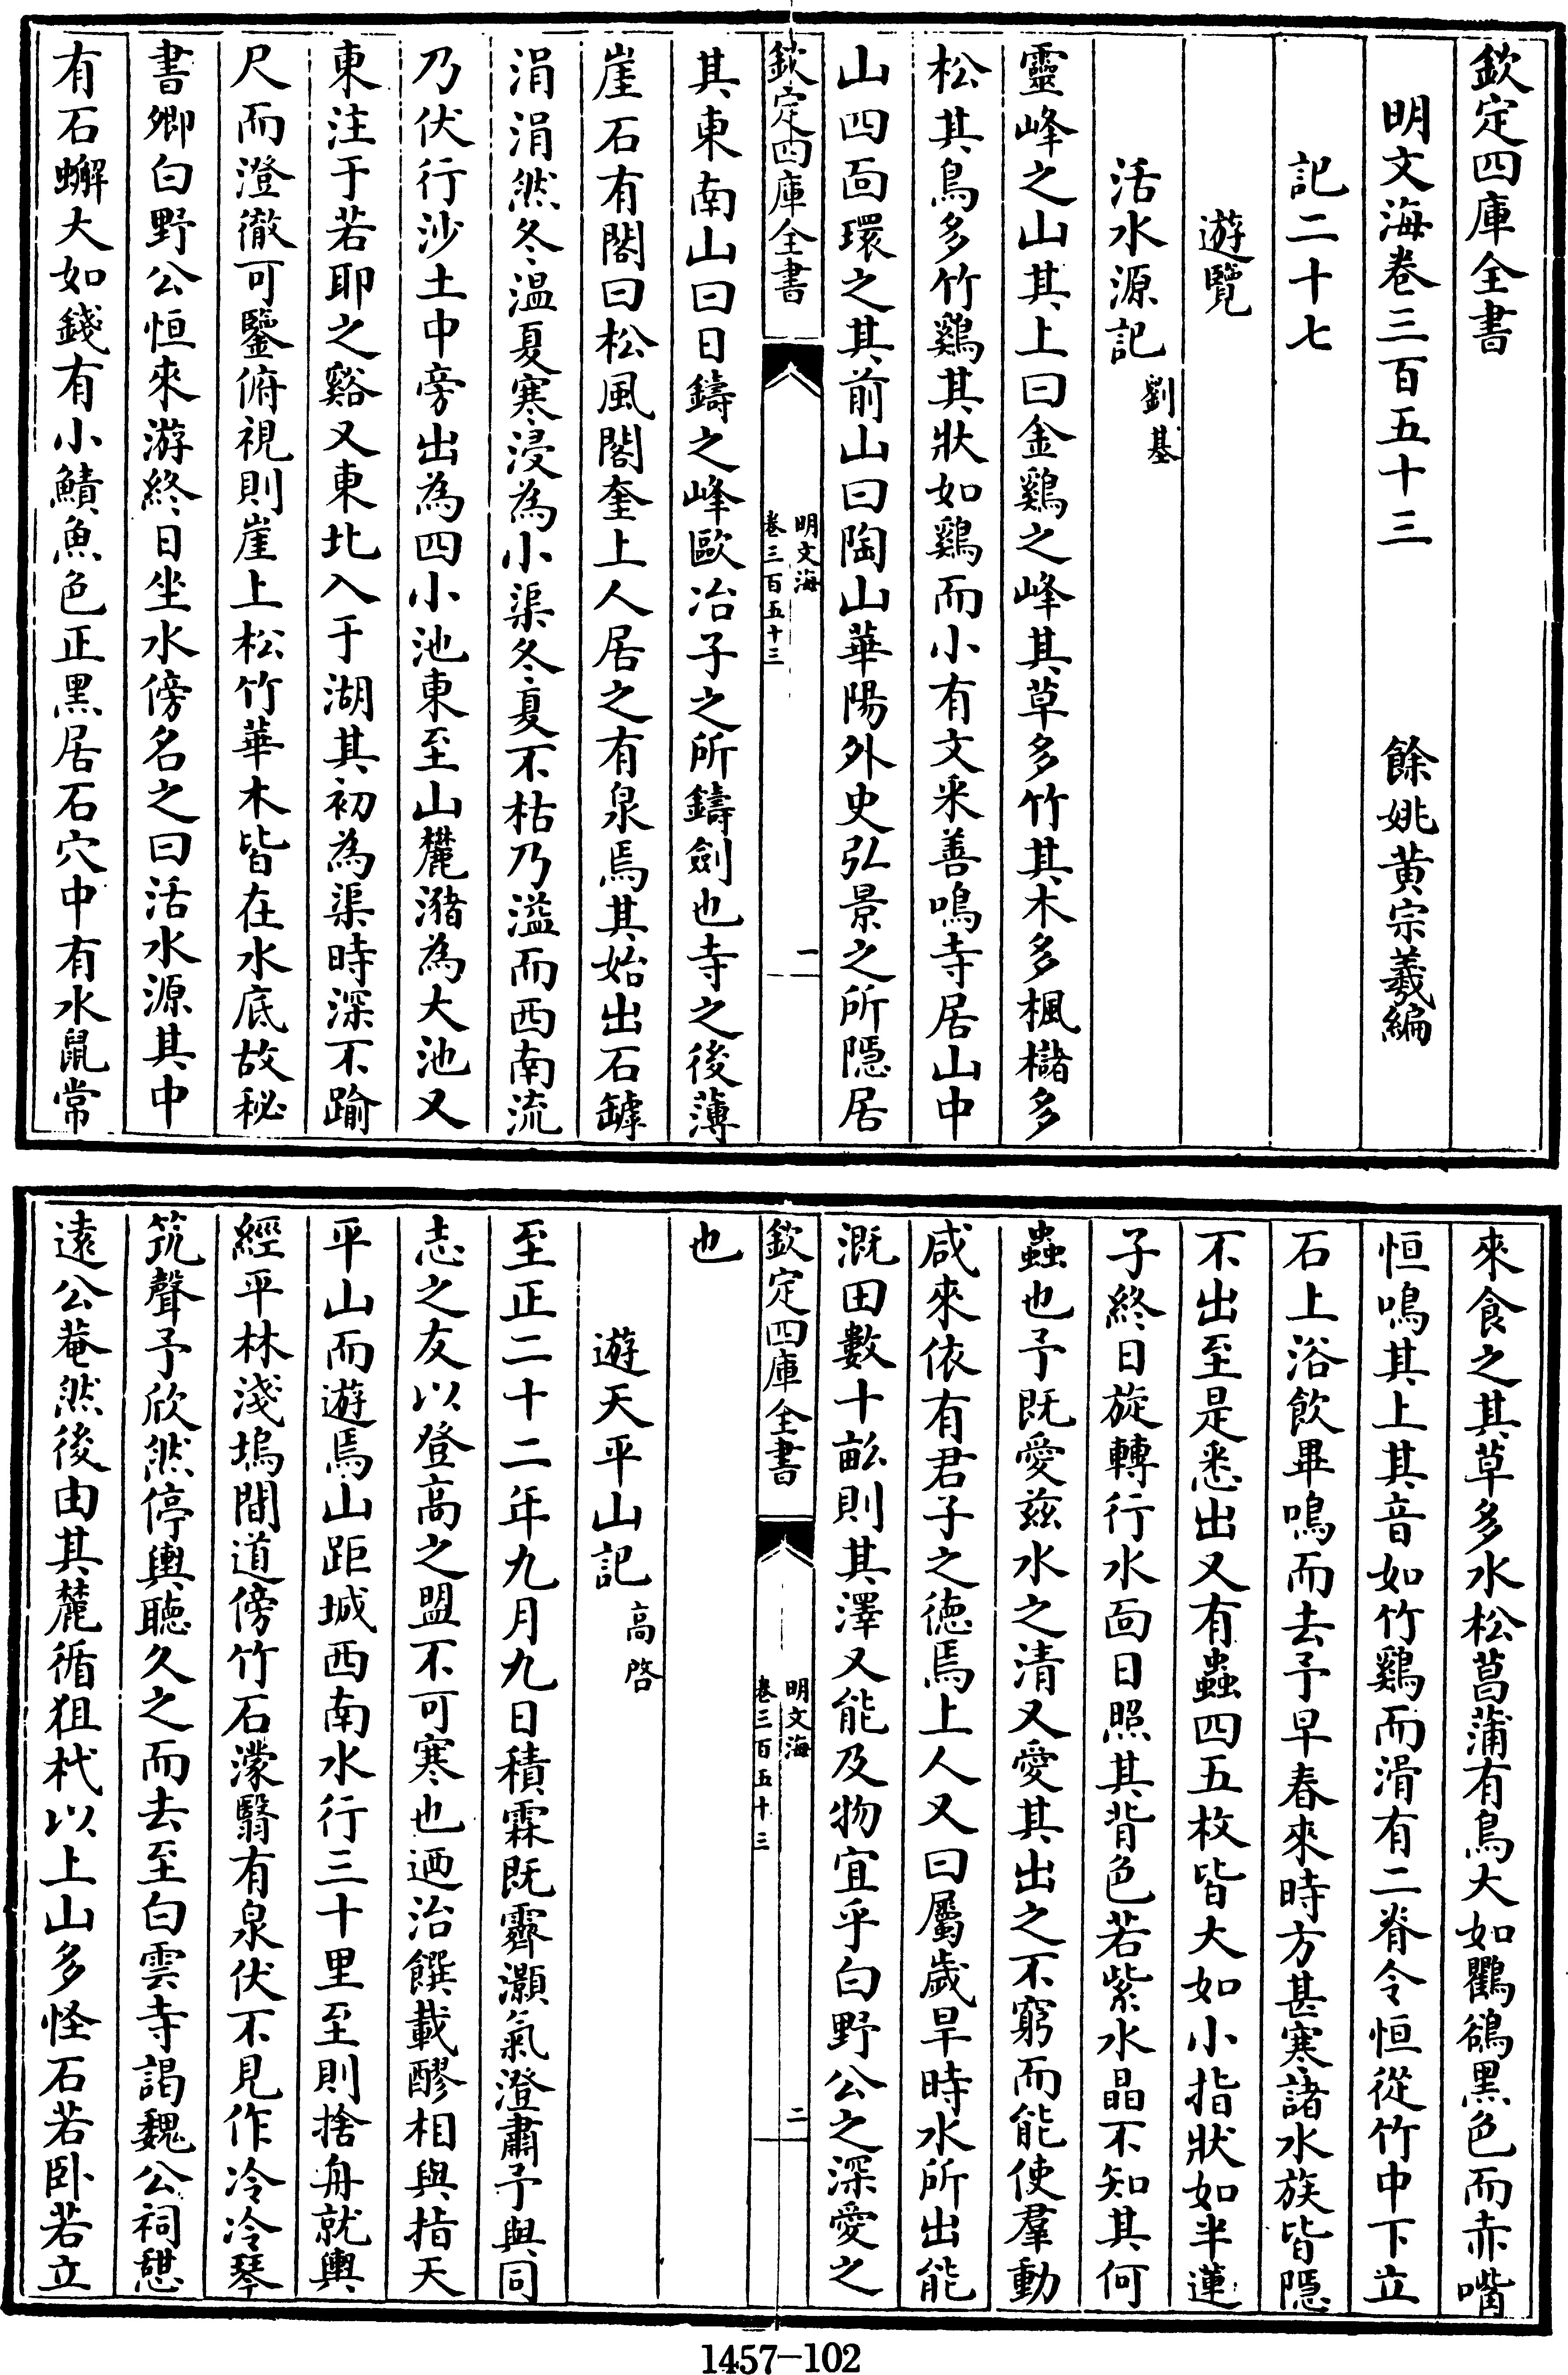 欽定四庫全書
明文海卷三百五十三 餘姚黄宗羲編
記二十七
遊覽
活水源記 劉基
靈峰之山其上曰金鷄之峰其草多竹其木多楓櫧多
松其鳥多竹鷄其狀如鷄而小有文采善鳴寺居山中
山四面環之其前山曰陶山華陽外史弘景之所隠居
欽定四庫全書
明文海
卷三百五十三
一
其東南山曰日鑄之峰歐冶子之所鑄劍也寺之後薄
崖石有閣曰松風閣奎上人居之有泉焉其始出石罅
涓涓然冬温夏寒浸為小渠冬夏不枯乃溢而西南流
乃伏行沙土中旁出為四小池東至山麓瀦為大池又
東注于若耶之谿又東北入于湖其初為渠時深不踰
尺而澄徹可鑒俯視則崖上松竹華木皆在水底故秘
書卿白野公恒來游終日坐水傍名之曰活水源其中
有石蠏大如錢有小鰿魚色正黑居石穴中有水鼠常
來食之其草多水松菖蒲有鳥大如鸜鵒黑色而赤嘴
恒鳴其上其音如竹鷄而滑有二脊令恒從竹中下立
石上浴飲畢鳴而去予早春來時方甚寒諸水族皆隠
不出至是悉出又有蟲四五枚皆大如小指狀如半蓮
子終日旋轉行水面日照其背色若紫水晶不知其何
蟲也予既愛茲水之清又愛其出之不窮而能使羣動
咸來依有君子之徳焉上人又曰屬歲旱時水所出能
溉田數十畝則其澤又能及物宜乎白野公之深愛之
欽定四庫全書
明文海
卷三百五十三
二
也
遊天平山記 高啓
至正二十二年九月九日積霖既霽灝氣澄肅予與同
志之友以登高之盟不可寒也廼治饌載醪相與指天
平山而遊焉山距城西南水行三十里至則捨舟就輿
經平林淺塢間道傍竹石濛翳有泉伏不見作冷冷琴
筑聲予欣然停輿聽久之而去至白雲寺謁魏公祠憇
遠公菴然後由其麓循狙杙以上山多怪石若卧若立
1457-102